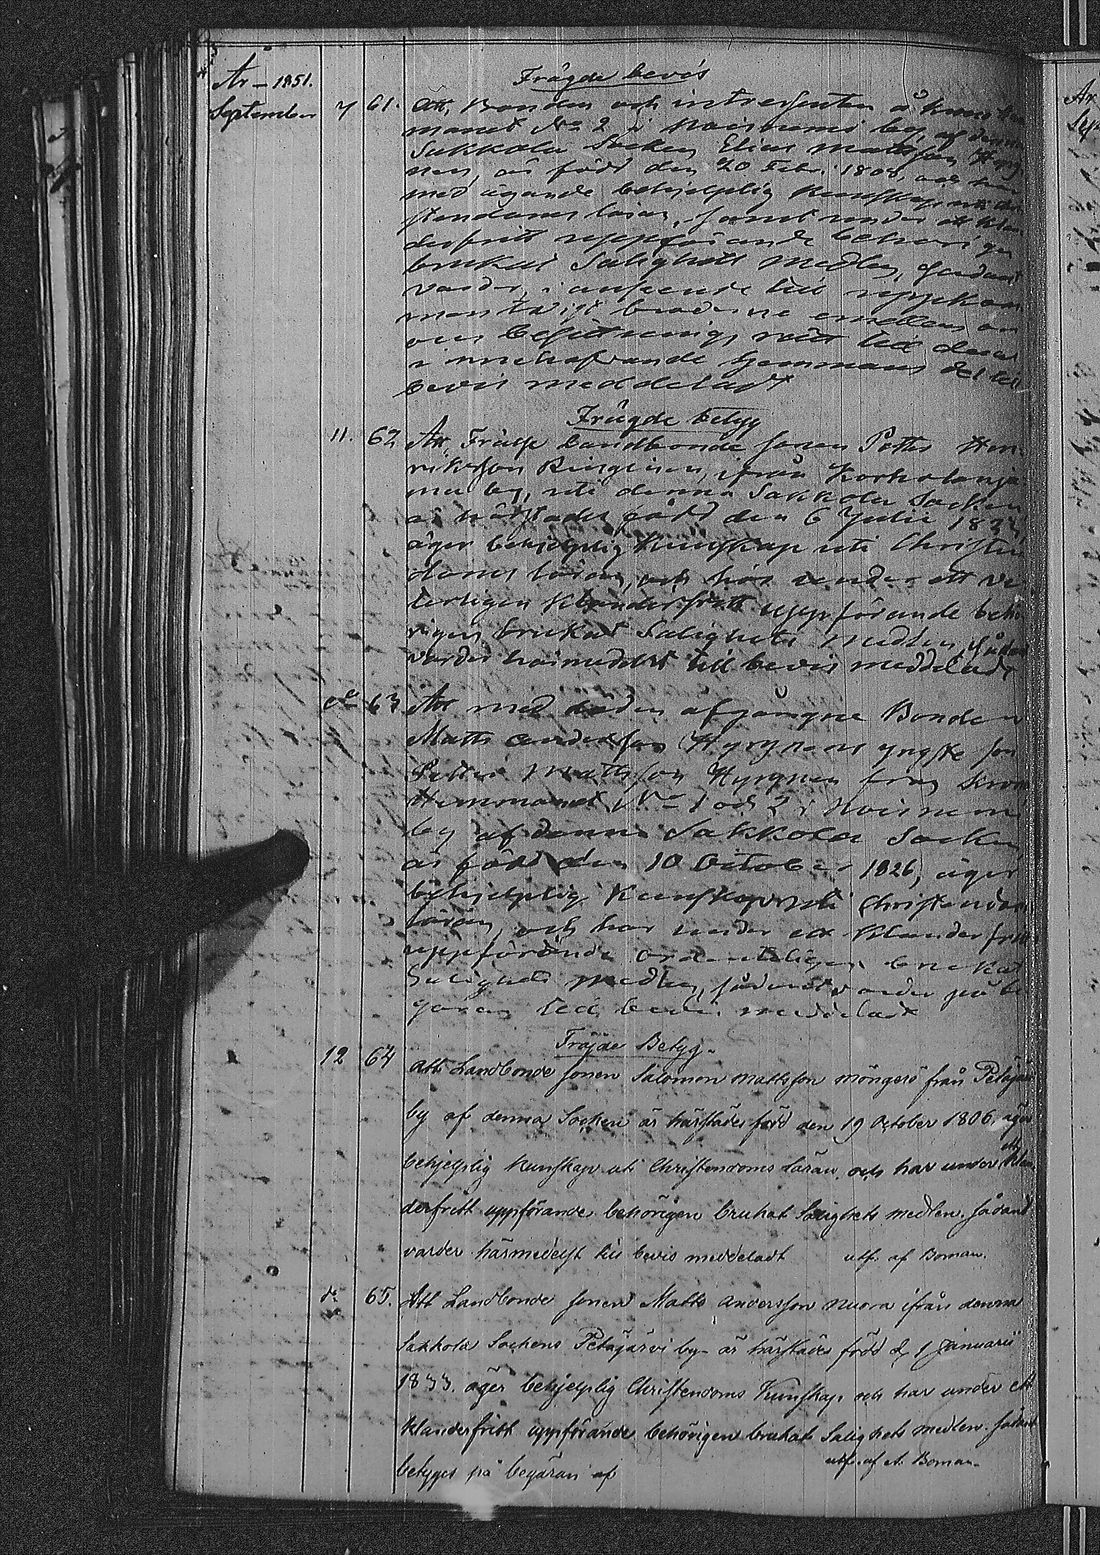 År – 1851.
Frägde bevis
September 7 61. Att, Bonden och intressenten å Krono hem
manet No 2 i Noisniemi by, af denna
Sakkola Socken Elias Mattsson Hyry
nen, är född den 20 Feb. 1808, och
med ägande behjelplig Kunskap uti Chri
stendoms läran, samt under ett klan
derfritt uppförande behörigen
brukat Salighets Medlen, sådant
varder, i anseende till uppkom
men bröderne emellan
om besittnings rätt till dera
innehafvande hemmans del till
bevis meddeladt
Frägde betyg
11. 62. Att, Frälse Landbonde sonen Petter Hen
riksson Ringinen, ifrån
ma by, uti denna Sakkola Socken
är härstädes född den 6 Julii 1833,
äger behjelplig Kunskap uti Christen
doms läran, och har under ett
klanderfritt uppförande behö
rigen brukat Salighets Medlen, sådant
varder härmedelst till bevis meddeladt
do 63 Att med döden afgångne Bonden
Matts Andersson Hyrynens yngste son
Petter Mattsson Hyrynen från Krono
Hemmanet No 1 och 2 i Noisniemi
by af denna Sakkola Socken,
är född den 10 October 1826, äger
behjelplig Kunskap uti Christendoms
läran, och har under ett klanderfritt
uppförande ordenteligen brukat
Salighets Medlen, sådant varder på be
gäran till bevis meddeladt
Fräjde Betyg.
12 64 Att Landbonde sonen Salomon Mattsson Möngere från Petäjärvi
by af denna Socken är härstädes född den 19 October 1806, äger
behjelplig Kunskap uti Christendoms Läran och har under ett klan
derfritt uppförande behörigen brukat Salighets medlen, sådant
varder härmedelst till bevis meddeladt utf. af Boman.
do 65. Att Landbonde sonen Matts Andersson Nuora ifrån denna
Sakkola Sockens Petäjärvi by är härstädes född d. 1 Januarii
1833. äger behjelplig Christendoms Kunskap och har under ett
klanderfritt uppförande behörigen brukat Salighets medlen, sådant
utf. af A. Boman.
betyges på begäran af